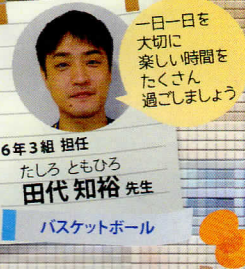 一日一日を
大切に
楽しい時間を
たくさん
過ごしましょう
6年3組 担任
たしろ ともひろ
田代 知裕 先生
バスケットボール